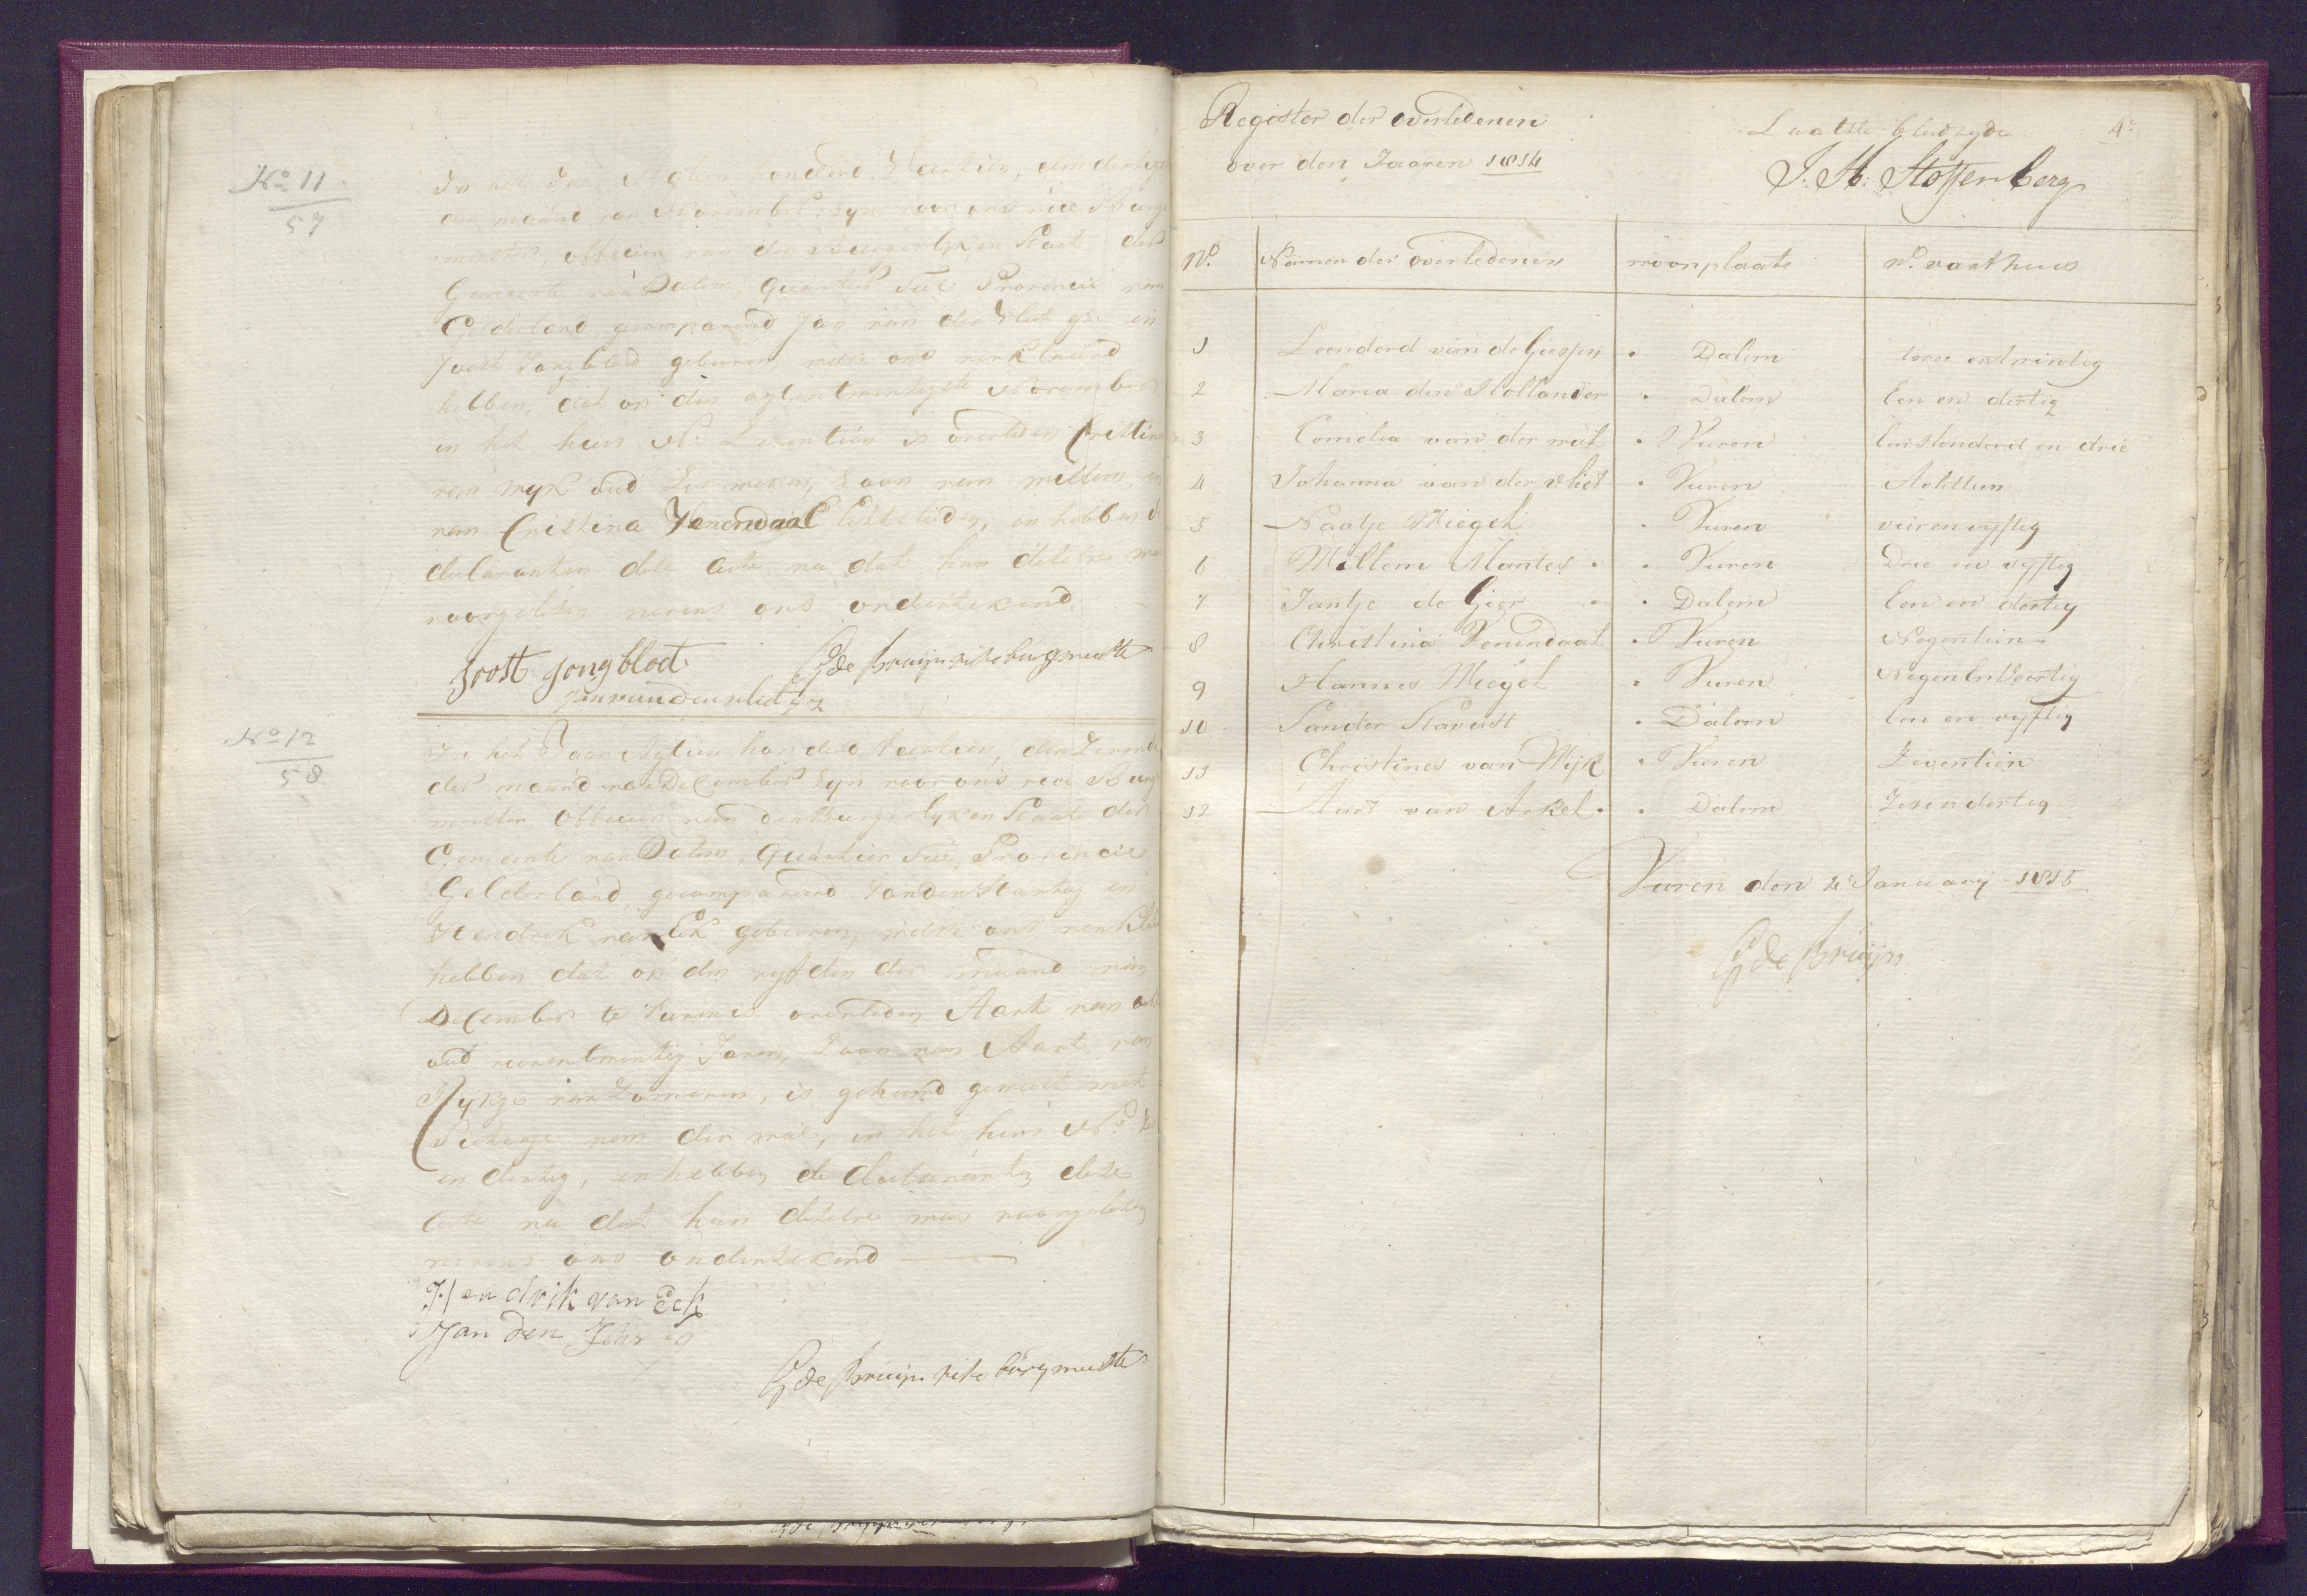 No 11
57
In het Jaar Agtien honderd Veertien, den dertigs
der maand van November zyn voor ons vice Burge
meester, officier van den Burgerlyken Staat der
Gemeente van Dalem, quartier Tiel Provincie van
Gelderland, gecompareerd Jan van der Vliet gz en
Joost Jongbloed geburen, welke ons verklaard
hebben, dat op den agtentwintigste November
in het huis No Zeventien is overleden Cristina
van wyk oud Zes weken, Zoon van willem, en
van Cristina Venendaal Echtelieden, en hebben de
declaranten deze acte na dat hun dezelve was
voorgelezen nevens ons ondertekend
Joost jongbloet
G de bruijn vise burgmeester
Jan van der vliet gz
No 12
58
In het Jaar Agtien honderd Veertien, den Zevende
der maand van December zyn voor ons vice Burge
meester officier van den Burgerlyken Staat der
Gemeente van Dalem, quartier Tiel, Provincie
Gelderland, gecompareerd Jan den Hartog en
Hendrik van Eck geburen, welke ons verklaard
hebben dat op den vyfden der maand van
December te Vuren is overleden Aart van
oud Jaren, Zoon van Aart van
Rykje van Zomeren, is gehuwd geweest met
van der wal, in het huis No
en dertig, en hebben de declaranten deze
acte na dat hun dezelve was voorgelezen
nevens ons ondertekend
Hendrik van Eck
Jan den
G de bruijn vise burgmeester
Register der overledenen
over den Jaaren 1814
Laatste bladzyde
4e
J. H. Stoffenberg
No.
Namen der overledenen
woonplaats
No. van t huis
1 Leendord van de Giessen Dalem twee en twintig
2 Maria den Hollander Dalem Een en dertig
3 Cornelia van der wal Vuren Een Honderd en drie
4 Johanna van der Vliet Vuren Achttien
5 Naatje Miegel Vuren vier en vyftig
6 Willem Mantes Vuren Drie en vyftig
7 Jantje de Gier Dalem Een en dertig
8 Christina Venendaal Vuren Negentien
9 Hannes Miegel Vuren Negen En Veertig
10 Sander Stavast Dalem Een en vyftig
11 Christina van Wijk Vuren Zeventien
12 Aart van Arkel Dalem Zes en dertig
Vuren den 2e January 1815
G de bruijn